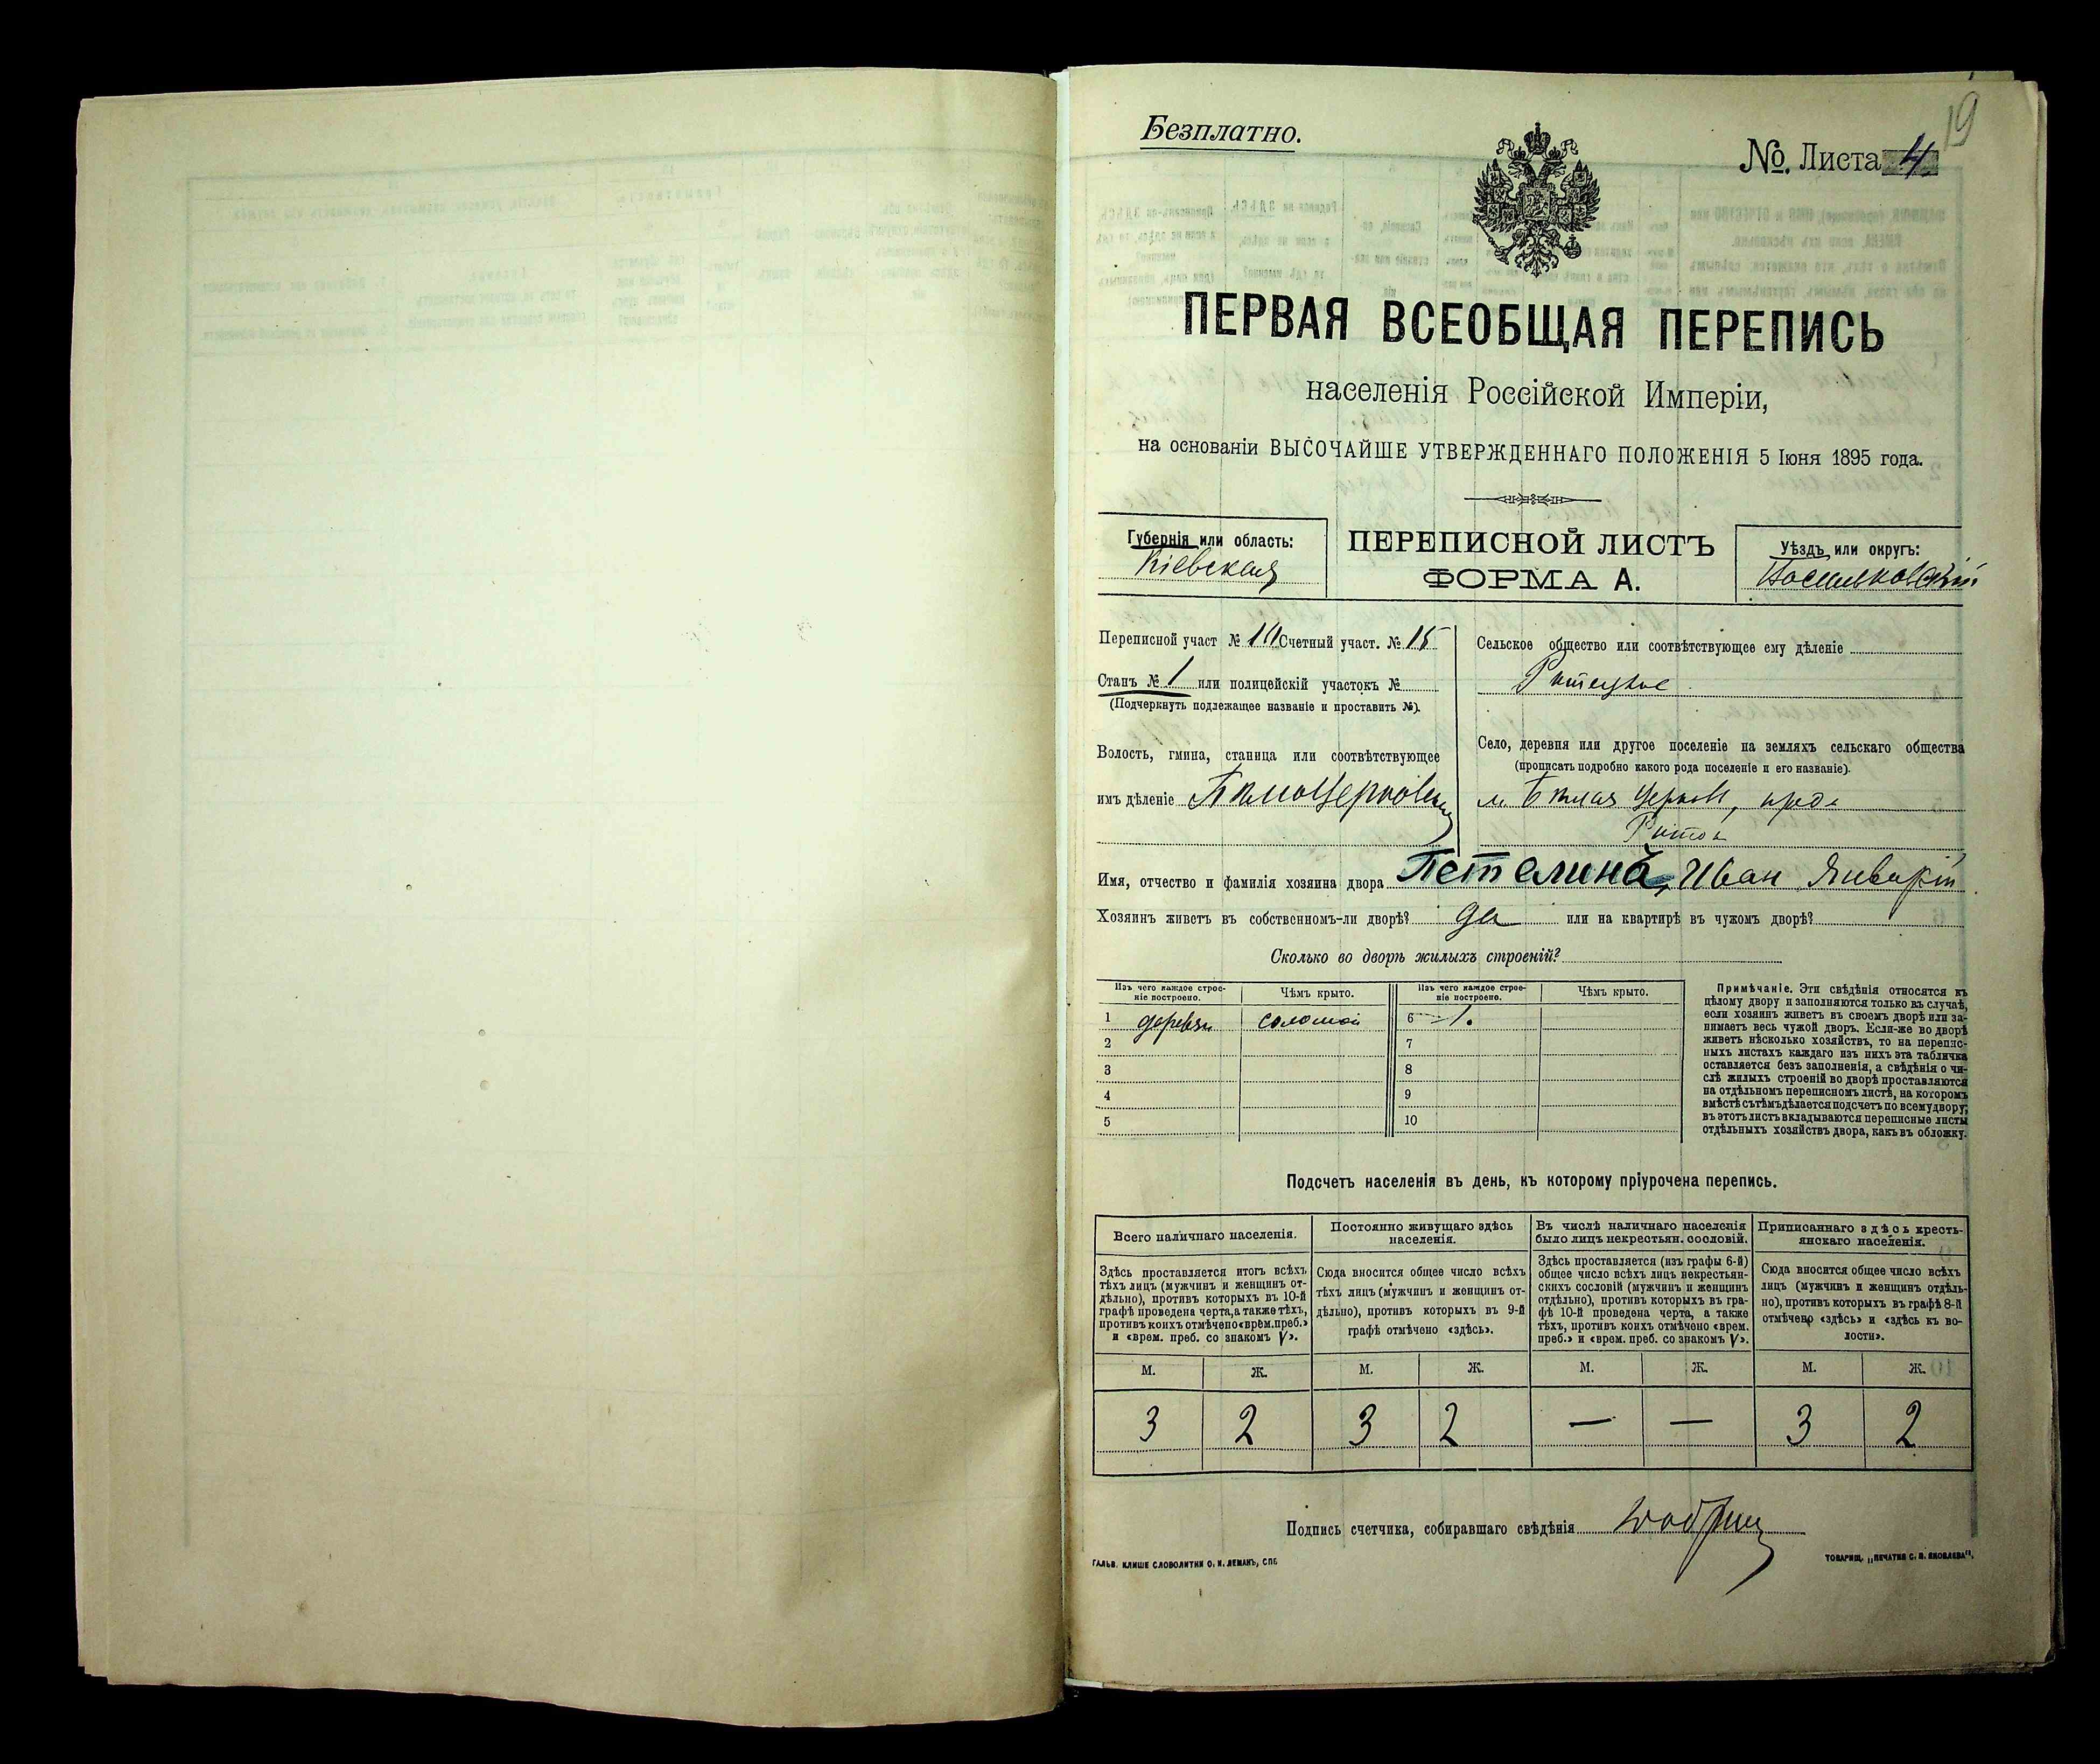 19
Безплатно.
№ Листа 4
ПЕРВАЯ ВСЕОБЩАЯ ПЕРЕПИСЬ
населенія Россійской Имперіи,
на основаніи ВЫСОЧАЙШЕ УТВЕРЖДЕННАГО ПОЛОЖЕНІЯ 5 Іюня 1895 года.
Губернія или область:
Кіевская
ПЕРЕПИСНОЙ ЛИСТЪ
ФОРМА А.
Уѣздъ или округъ:
Васильковскій
Переписной участ № Счетный участ. № 15
Станъ № 1 или полицейскій участокъ №
(Подчеркнуть подлежащее названіе и проставить №).
Волость, гмина, станица или соотвѣтствующее
имъ дѣленіе Бѣлоцерковская
Сельское общество или соотвѣтствующее ему дѣленіе
Село, деревня или другое поселеніе на земляхъ сельскаго общества
(прописать подробно какого рода поселеніе и его названіе).
м. Бѣлая Церковь, пред.
Имя, отчество и фамилія хозяина двора Петелина, Иван
Хозяинъ живетъ въ собственномъ-ли дворѣ? да или на квартирѣ въ чужомъ дворѣ?
Сколько во дворѣ жилыхъ строеній?
Изъ чего каждое строе-
ніе построено.
Чѣмъ крыто.
Изъ чего каждое строе-
ніе построено.
Чѣмъ крыто.
1 деревян соломой 6 1.
2 7
3 8
4 9
5 10
Примѣчаніе. Эти свѣдѣнія относятся къ
цѣлому двору и заполняются только въ случаѣ,
если хозяинъ живетъ въ своемъ дворѣ или за-
нимаетъ весь чужой дворъ. Если-же во дворѣ
живетъ нѣсколько хозяйствъ, то на перепис-
ныхъ листахъ каждаго изъ нихъ эта табличка
оставляется безъ заполненія, а свѣдѣнія о чи-
слѣ жилыхъ строеній во дворѣ проставляются
на отдѣльномъ переписномъ листѣ, на которомъ
вмѣстѣ сътѣмъ дѣлается подсчетъ по всему двору;
въ этотъ листъ вкладываются переписные листы
отдѣльныхъ хозяйствъ двора, какъ въ обложку.
Подсчетъ населенія въ день, къ которому пріурочена перепись.
Всего наличнаго населенія.
Здѣсь проставляется итогъ всѣхъ
тѣхъ лицъ (мужчинъ и женщинъ от-
дѣльно), противъ которыхъ въ 10-й
графѣ проведена черта, а также тѣхъ,
противъ коихъ отмѣчено «врем. преб.»
и «врем. преб. со знакомъ V».
Постоянно живущаго здѣсь
населенія.
Сюда вносится общее число всѣхъ
тѣхъ лицъ (мужчинъ и женщинъ от-
дѣльно), противъ которыхъ въ 9-й
графѣ отмѣчено «здѣсь».
Въ числѣ наличнаго населенія
было лицъ некрестьян. сословій.
Здѣсь проставляется (изъ графы 6-й)
общее число всѣхъ лицъ некрестьян-
скихъ сословій (мужчинъ и женщинъ
отдѣльно), противъ которыхъ въ гра-
фѣ 10-й проведена черта, а также
тѣхъ, противъ коихъ отмѣчено «врем.
преб.» и «врем. преб. со знакомъ V».
Приписаннаго здѣсь кресть-
янскаго населенія.
Сюда вносится общее число всѣхъ
лицъ (мужчинъ и женщинъ отдѣль-
но), противъ которыхъ въ графѣ 8-й
отмѣчено «здѣсь» и «здѣсь къ во-
лости».
М. Ж. М. Ж. М. Ж. М. Ж.
3 2 3 2 — — 3 2
Подпись счетчика, собиравшаго свѣдѣнія
ГАЛЬВ. КЛИШЕ СЛОВОЛИТНИ О. И. ЛЕМАНЪ, СПБ.
ТОВАРИЩ. „ПЕЧАТНЯ С. П. ЯКОВЛЕВА".